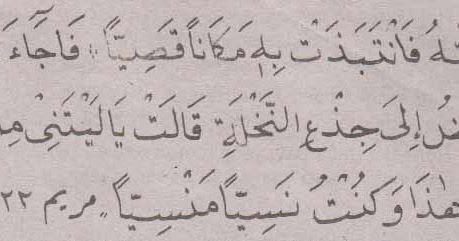 ـتْهُ فَانْتَبَذَتْ بِهٖ مَكَاناً قَصِيّاً ، فَاَجَاءَ
ضُ اِلىٰ جِذْعِ النَّخْلَةِ قَالَتْ يَالَيْتَنِىْ مِـ
هٰذَا وَكُنْتُ نَسِيّاً مَنْسِيّاً ، مريم ٢٢